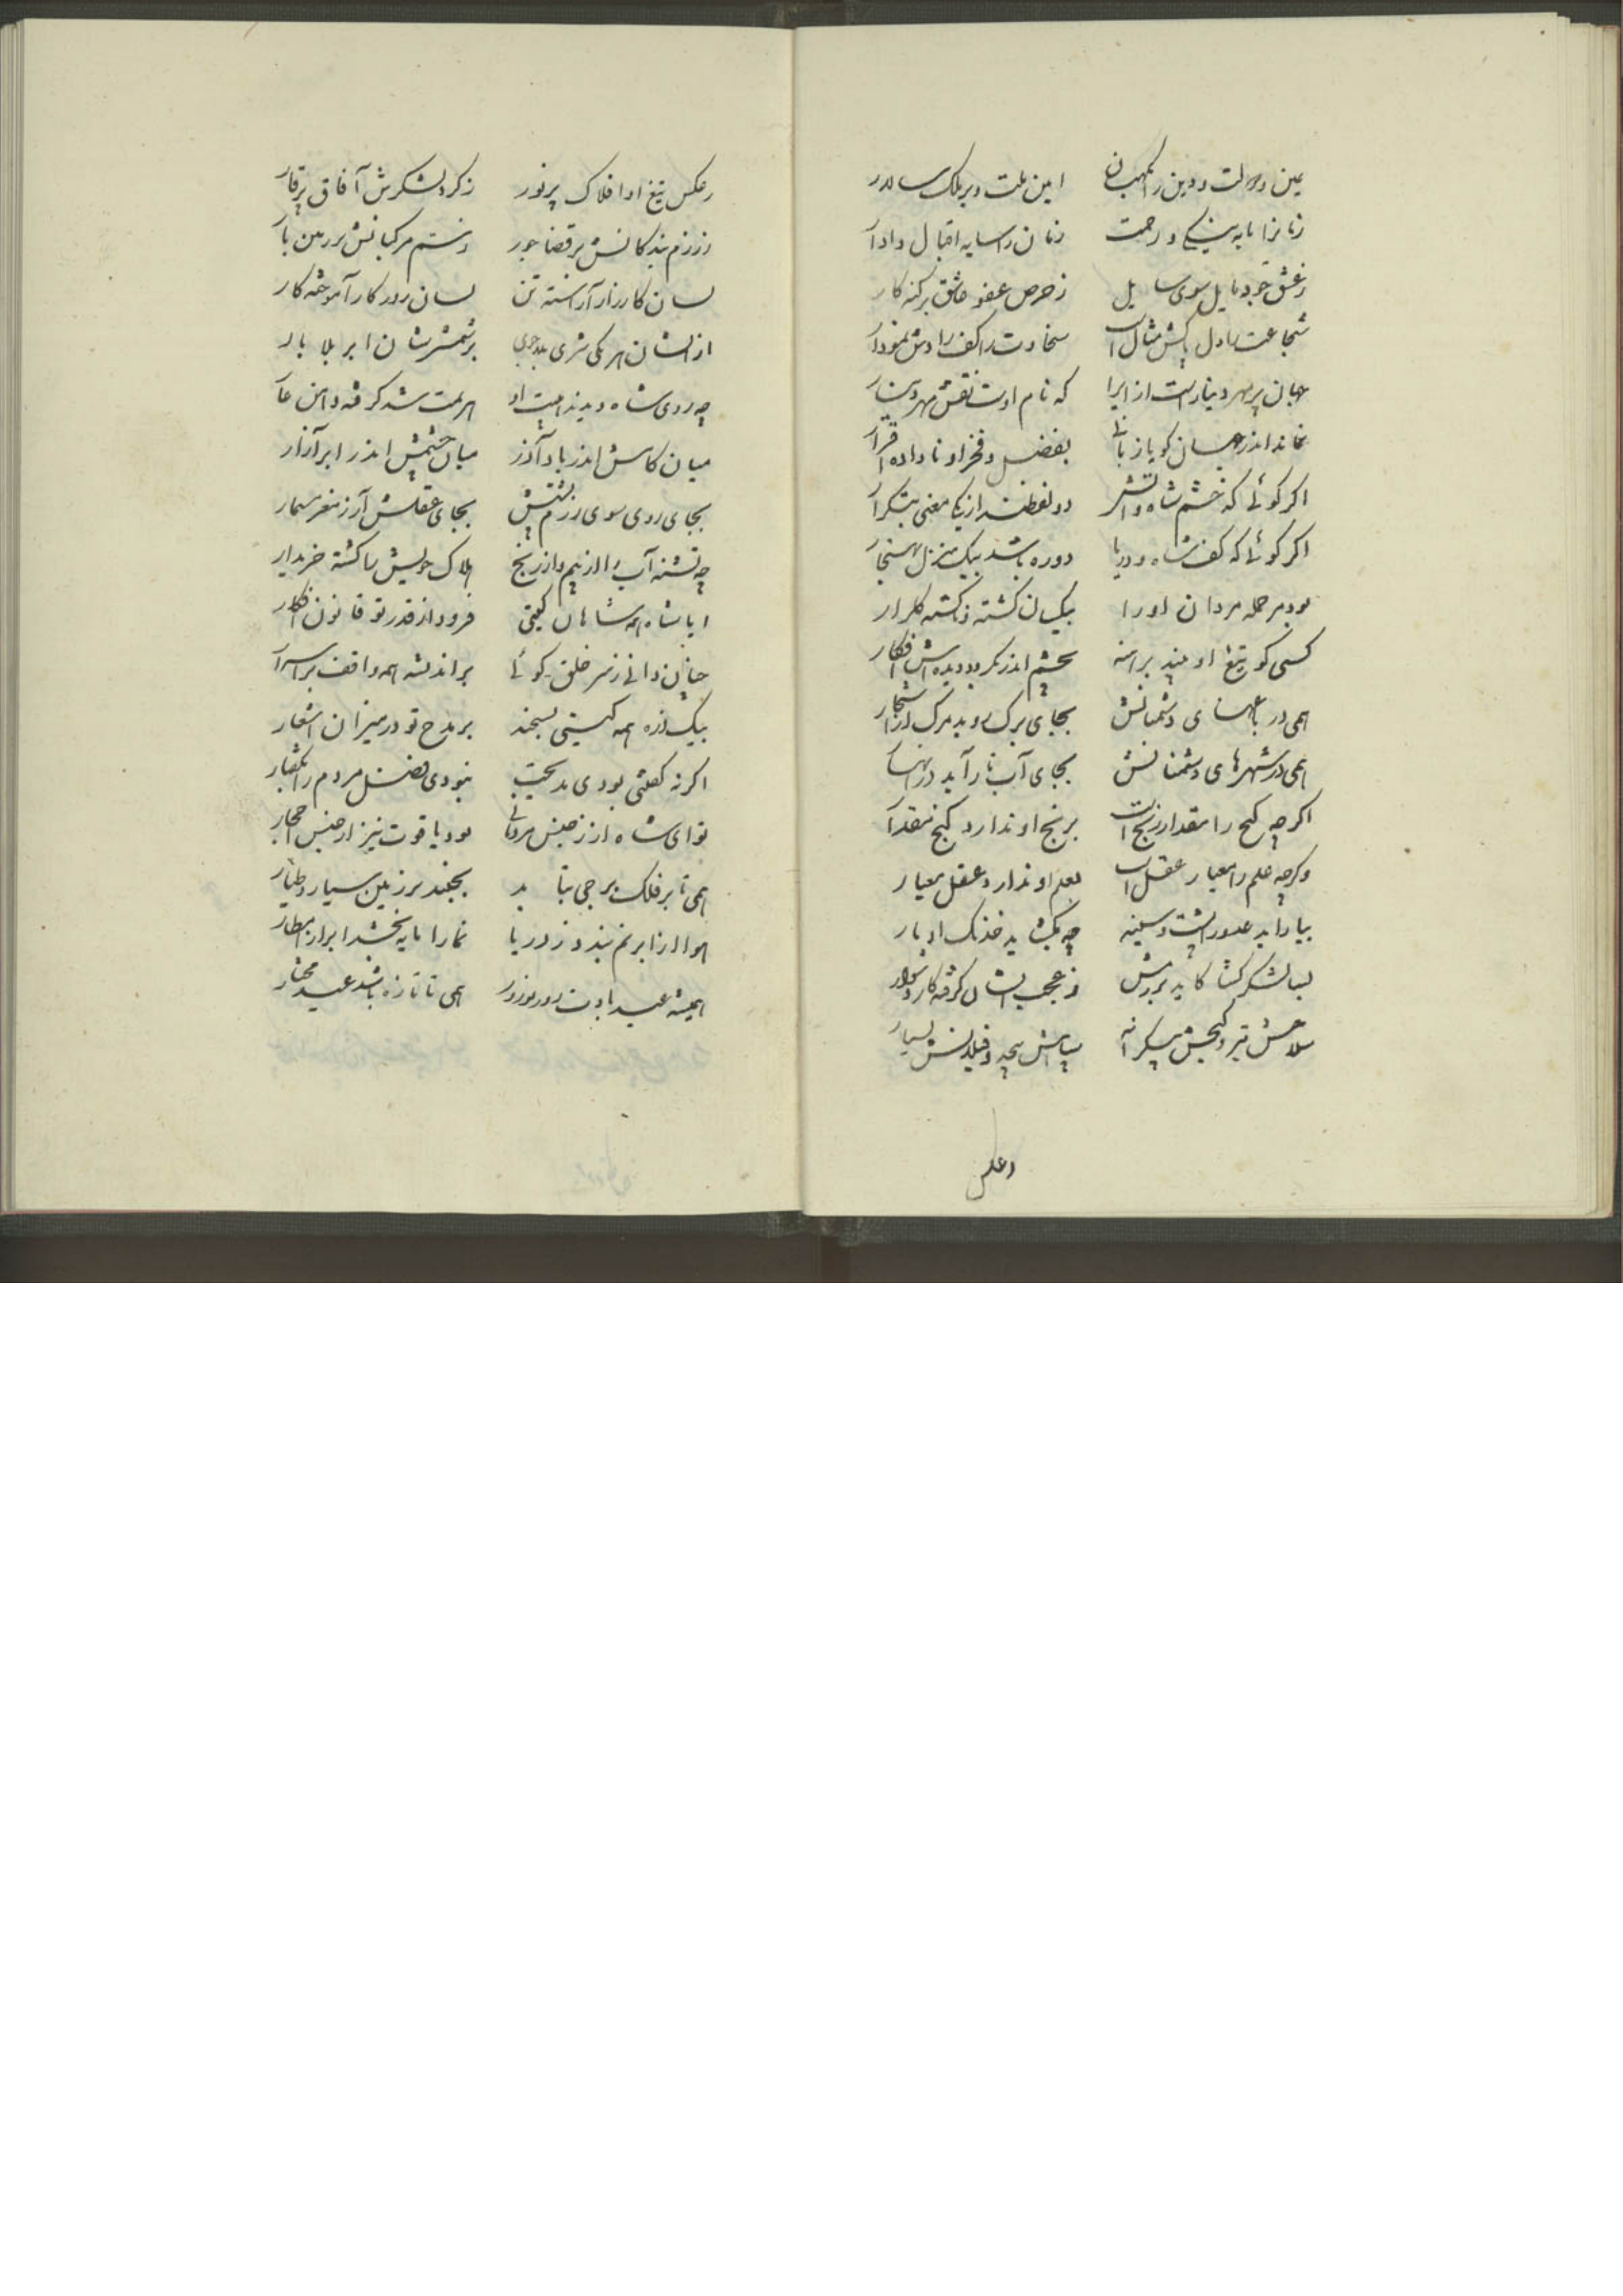 یمین دولت و دین را نگهبان امین ملت و بر ملک سالار
زمانرا مایه نیکی و رحمت زمان را سایه اقبال دادار
ز عشق جود مایل سوی سایل ز حرص عفو عاشق بر گنه کار
شجاعت را دل پاکش مثال است سخاوت را کف رادش نمودار
جهان پر مهر دینارست ازیرا که نام اوست نقش مهر دینار
نماند اندر جهان گویا زبانی بفضل و فخر او ناداده اقرار
اگر گوئی که خشم شاه و آتش دو لفظند از یکی معنی بتکرار
اگر گوئی که کف شاه و دریا دو ره باشد بیک منزل بهنجار
بود بر حمله مردان او را یکسان کشته و کشته کلزار
کسی کو تیغ او بیند برهنه بچشم اندر نگر دو دیده اش افکار
همی در باغهای دشمنانش بجای برگ روید مرگ از اشجار
همی در شهرهای دشمنانش بجای آب نار آید در انهار
اگر چه گنج را مقدار رنج است برنج او ندارد گنج مقدار
وگرچه علم را معیار عقل است بعلم او ندارد عقل معیار
بیاراید عدو را پشت و سینه چه بگشاید خدنک او بار
بسا لشکر کشا کاید برزمش ز عجب ایشان گرفته کار دشوار
سلاحش تیز و گنجش بیکرانه سپاهش بیحد و فیلانش بسیار
و عکس
ز عکس تیغ او افلاک پر نور ز گرد لشکرش آفاق پر قار
ز رزم بندگانش بر قضا جور ز سم مرکبانش بر زمین بار
بسان کارزار آراسته تن بسان روزگار آموخته کار
از ایشان هر یکی شری بلاجوی بر شمشرشان ابر بلا بار
چه روی شاه دیدند هیبت او هزیمت شد گرفته دامن عار
میان کامش اندر باد آذر میان چشمش اندر ابر آزار
بجای روی سوی رزم پشتش بجای عقلش آز مغز بیمار
چه تشنه آب را از بیم و از رنج هلاک خویش را گشته خریدار
ایا شاه همه شاهان گیتی فرود از قدر تو قانون افکار
چنان دانی ز سر خلق گوئی بر اندیشه همه واقف بر اسرار
بیک ذره همه گیتی بسنجند بر مدح تو در میزان اشعار
اگر نه گفتنی بودی مدیحت نبودی فضل مردم را بگفتار
تو ای شاه ار ز جنس مردمانی بود یاقوت نیز از جنس احجار
همی تا بر فلک برجی بتابد بجنبد بر زمین سیار و طیار
هوا را ز ابر نم بندد ز دریا نما را مایه بخشد ابر از امطار
همیشه عید بادت روز نوروز همی تا تازه باشد عید مختار